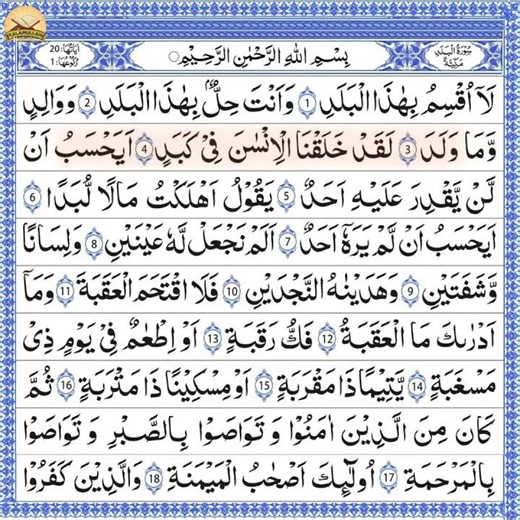 سُوْرَةُ الْبَلَدِ
مَكِّيَّةٌ
بِسْمِ اللّٰهِ الرَّحْمٰنِ الرَّحِيْمِ
اٰيَاتُهَا: 20
رُكُوْعُهَا: 1
لَاۤ اُقْسِمُ بِهٰذَا الْبَلَدِ 1 وَ اَنْتَ حِلٌّۢ بِهٰذَا الْبَلَدِ 2 وَ وَالِدٍ
وَّ مَا وَلَدَ 3 لَقَدْ خَلَقْنَا الْاِنْسٰنَ فِیْ كَبَدٍ 4 اَیَحْسَبُ اَنْ
لَّنْ یَّقْدِرَ عَلَیْهِ اَحَدٌ 5 یَقُوْلُ اَهْلَكْتُ مَالًا لُّبَدًا 6
اَیَحْسَبُ اَنْ لَّمْ یَرَهٗۤ اَحَدٌ 7 اَلَمْ نَجْعَلْ لَّهٗ عَیْنَیْنِ 8 وَ لِسَانًا
وَّ شَفَتَیْنِ 9 وَ هَدَیْنٰهُ النَّجْدَیْنِ 10 فَلَا اقْتَحَمَ الْعَقَبَةَ 11 وَ مَاۤ
اَدْرٰىكَ مَا الْعَقَبَةُ 12 فَكُّ رَقَبَةٍ 13 اَوْ اِطْعٰمٌ فِیْ یَوْمٍ ذِیْ
مَسْغَبَةٍ 14 یَّتِیْمًا ذَا مَقْرَبَةٍ 15 اَوْ مِسْكِیْنًا ذَا مَتْرَبَةٍ 16 ثُمَّ
كَانَ مِنَ الَّذِیْنَ اٰمَنُوْا وَ تَوَاصَوْا بِالصَّبْرِ وَ تَوَاصَوْا
بِالْمَرْحَمَةِ 17 اُولٰٓىِٕكَ اَصْحٰبُ الْمَیْمَنَةِ 18 وَ الَّذِیْنَ كَفَرُوْا